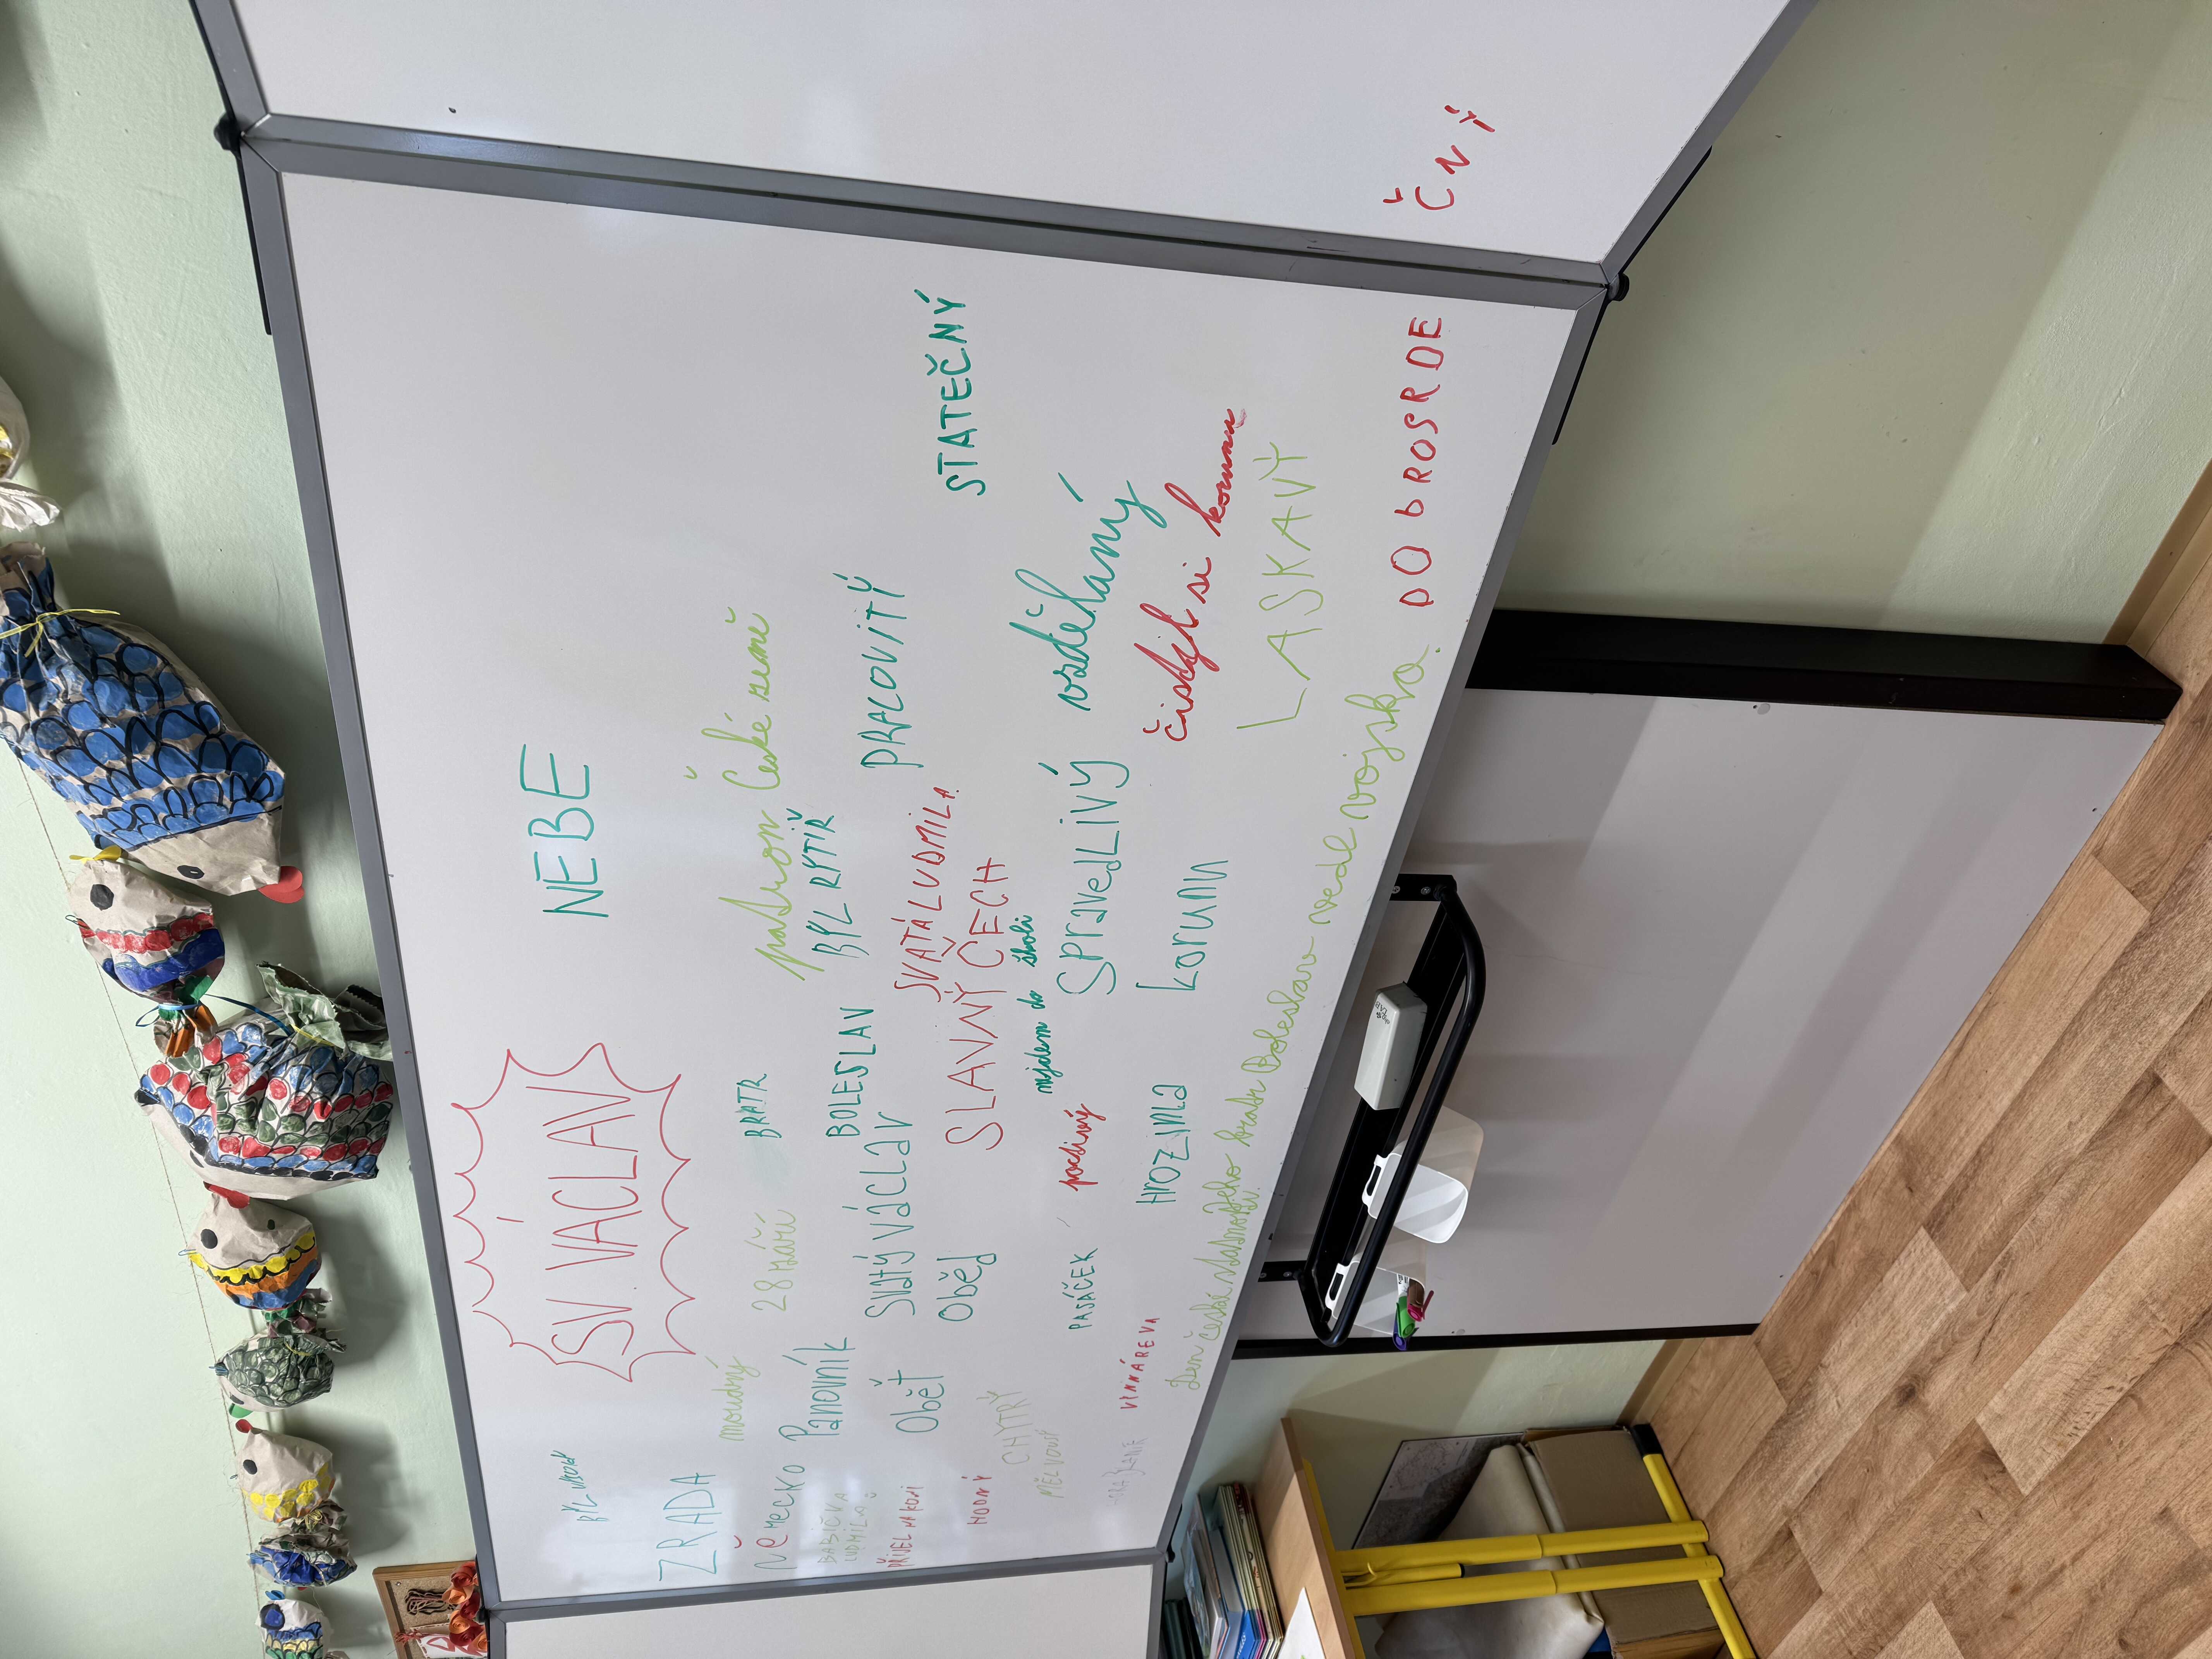 SV. VÁCLAV
NEBE
BYL
ZRADA
moudrý
28 září
BRATR
patron České země
Německo
Panovník
BOLESLAV
BYL RYTÍŘ
PRACOVITÝ
BABIČKA
LUDMILA
Svatý Václav
SVATÁ LUDMILA
STATEČNÝ
PŘIJEL NA KONI
Oběť
Oběd
SLAVNÝ ČECH
nejdem do školi
vzdělaný
HODNÝ
CHYTRÝ
MĚL VOUSY
PASÁČEK
poctivý
SpravedLivý
čistil si korunu
HROZINLA
korunu
LASKAVÝ
VINNÁ REVA
Den české státnosti.
Jeho bratr Boleslav vede vojsko.
DObROSRDE
ČNÝ